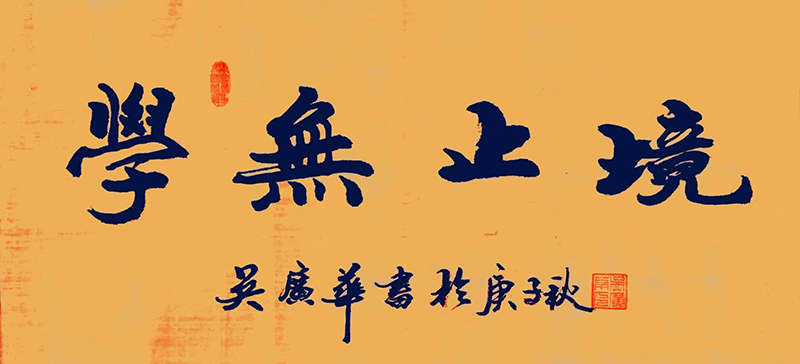 學無止境
吳廣華書於庚子秋